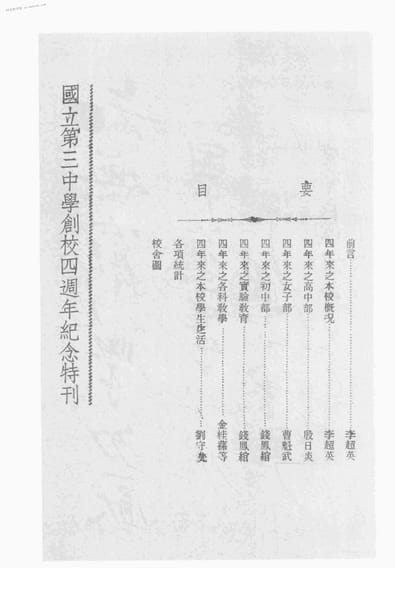 要目
前言……李超英
四年來之本校概况……李超英
四年來之高中部……殷日炎
四年來之女子部……曹魁武
四年來之初中部……錢鳳綰
四年來之實驗教育……錢鳳綰
四年來之各科教學……金桂蓀等
四年來之本校學生生活……劉守
各項統計
校舍圖
國立第三中學創校四週年紀念特刊